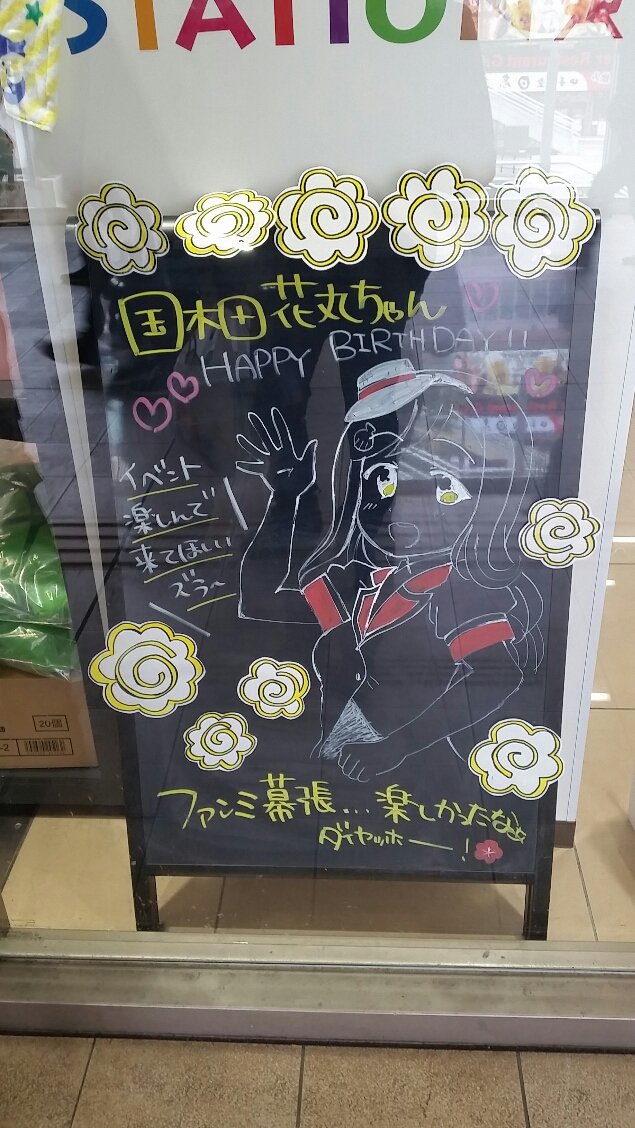 STATION
国木田花丸ちゃん
HAPPY BIRTHDAY!!
イベント
楽しんで
来てほしい
ズラ〜
ファンミ幕張...楽しかったなぁ
ダイヤッホー!
20個